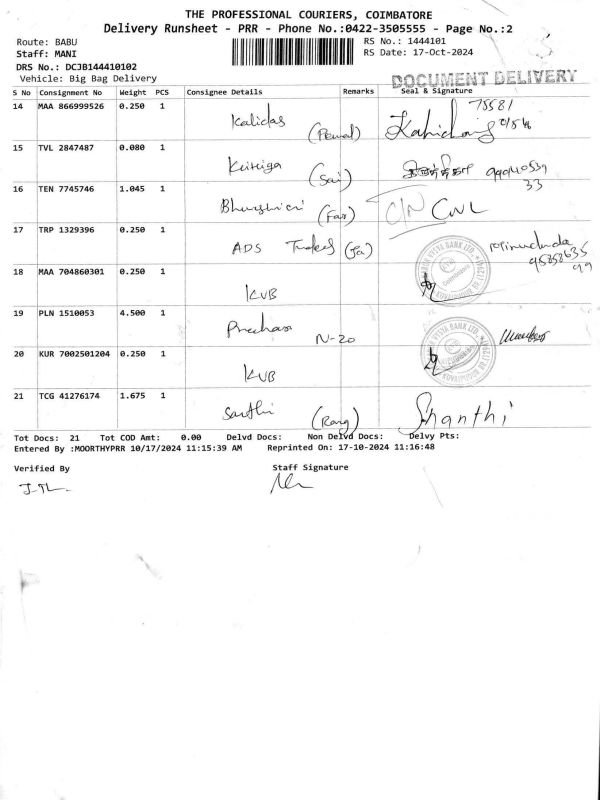 THE PROFESSIONAL COURIERS, COIMBATORE
Delivery Runsheet - PRR - Phone No.:0422-3505555 - Page No.:2
Route: BABU
RS No.: 1444101
Staff: MANI
RS Date: 17-Oct-2024
DRS No.: DCJB144410102
Vehicle: Big Bag Delivery
DOCUMENT DELIVERY
S No Consignment No Weight PCS Consignee Details Remarks Seal & Signature
14 MAA 866999526 0.250 1 Kalidas 75581
15 TVL 2847487 0.080 1 (Sai)
16 TEN 7745746 1.045 1 (Far) C/N CNL
17 TRP 1329396 0.250 1 ADS
18 MAA 704860301 0.250 1 KVB
19 PLN 1510053 4.500 1 N-20
20 KUR 7002501204 0.250 1 KVB
21 TCG 41276174 1.675 1 Santhi Shanthi
Tot Docs: 21 Tot COD Amt: 0.00 Delvd Docs: Non Delvd Docs: Delvy Pts:
Entered By :MOORTHYPRR 10/17/2024 11:15:39 AM Reprinted On: 17-10-2024 11:16:48
Verified By Staff Signature